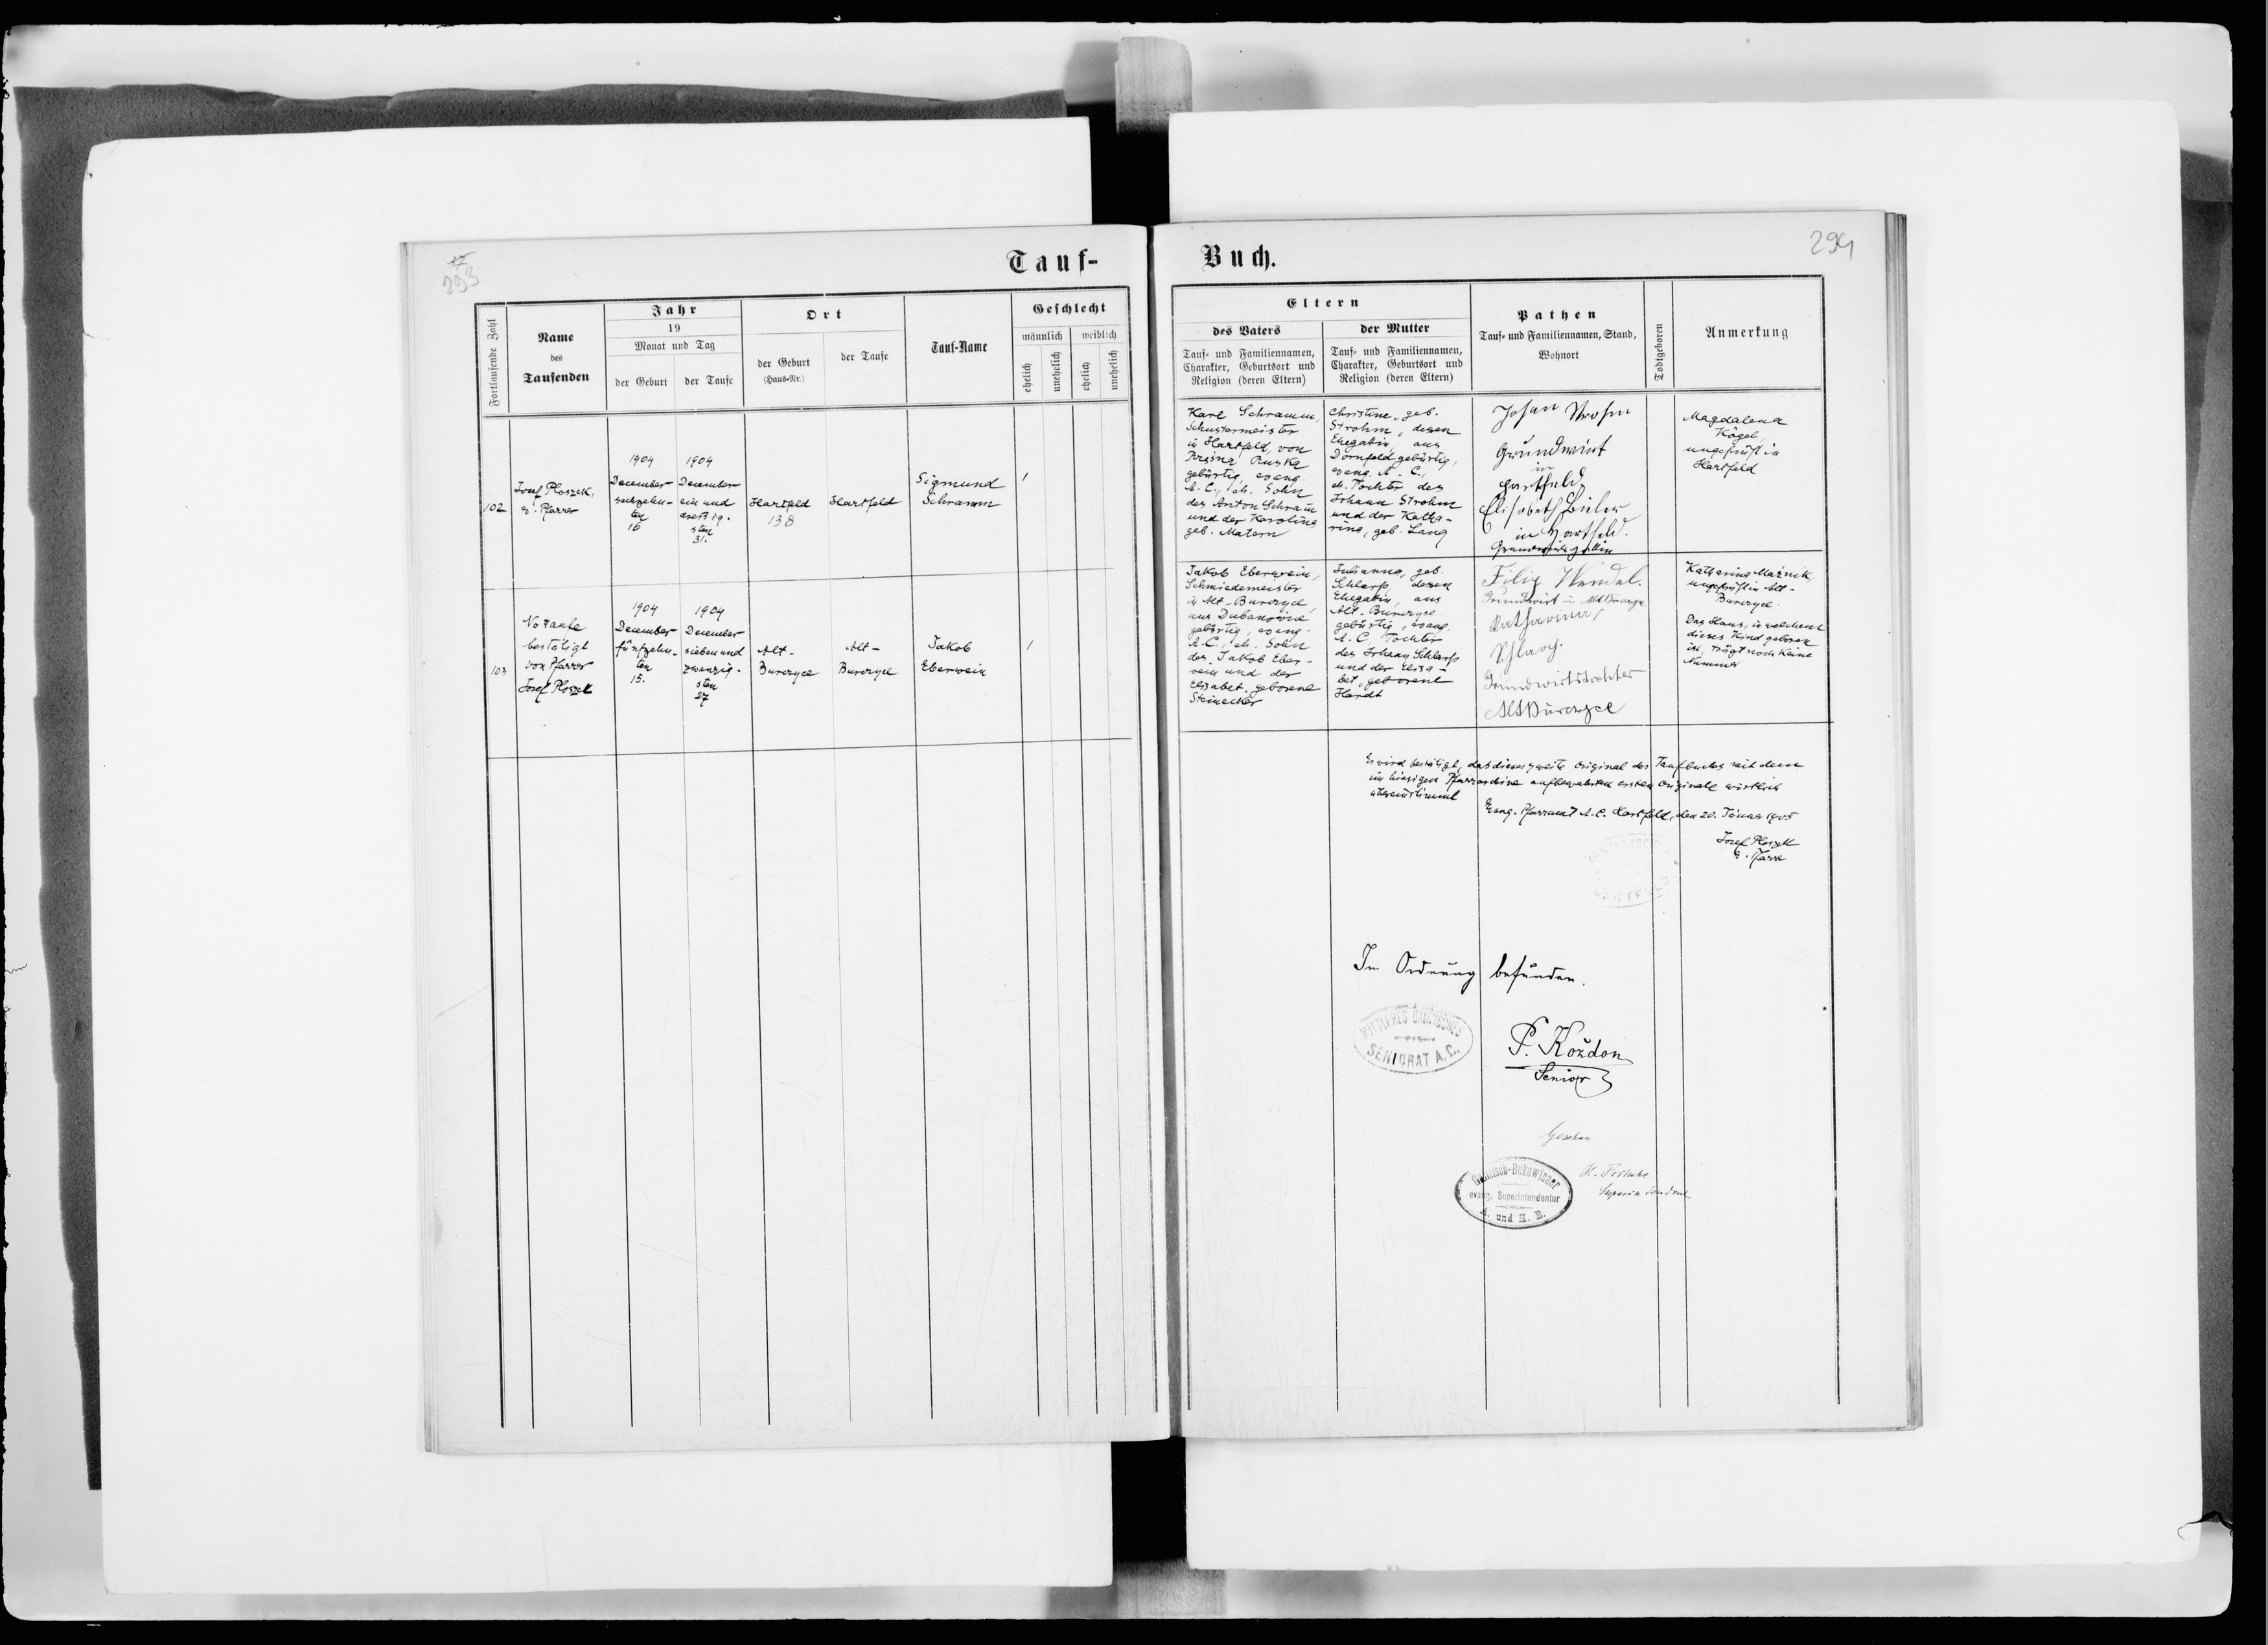 293
Tauf-
Fortlaufende Zahl
Name
des
Taufenden
Jahr
19
Monat und Tag
der Geburt
der Taufe
Ort
der Geburt
(Haus-Nr.)
der Taufe
Tauf-Name
Geschlecht
männlich
weiblich
ehelich
unehelich
ehelich
unehelich
102
Josef Ploszek,
e. Pfarrer
1904
December
sechzehn-
ten
16
1904
December
ein und
dreßig-
sten
31.
Hartfeld
138
Hartfeld
Sigmund
Schramm
103
Notaufe
bestätigt
von Pfarrer
Josef Ploszek
1904
December
fünfzehn-
ten
15.
1904
December
sieben und
zwanzig-
sten
27
Alt-
Burczyce
Alt-
Burczyce
Jakob
Eberwein
Buch.
294
Eltern
des Vaters
Tauf- und Familiennamen,
Charakter, Geburtsort und
Religion (deren Eltern)
der Mutter
Tauf- und Familiennamen,
Charakter, Geburtsort und
Religion (deren Eltern)
Pathen
Tauf- und Familiennamen, Stand,
Wohnort
Todtgeboren
Anmerkung
Karl Schramm,
Schustermeister
in Hartfeld, von
Ruska
gebürtig, evang.
A. C., eh. Sohn
des Anton Schram
und der Karolina
geb. Matern
Christine, geb.
Strohm, dessen
Ehegatin aus
Dornfeld gebürtig,
evang. A. C.,
eh. Tochter des
Johann Strohm
und der Katha-
rina, geb. Lang
Johan Strohm
Grundwirt
in
Hartfeld
Elisabeth Büler
in Hartfeld.
Grundwirtsgattin
Magdalena
Kögel,
ungeprüft in
Hartfeld
Jakob Eberwein,
Schmiedemeister
in Alt-Burczyce,
aus Dubanowice
gebürtig, evang.
A. C., eh. Sohn
des Jakob Eber-
wein und der
Elisabet geborene
Steinecker
Julianna, geb.
Schlarp, dessen
Ehegatin, aus
Alt-Burczyce
gebürtig, evang.
A. C. Tochter
des Johann Schlarp
und der Elisa-
bet, geborene
Hardt
Filip Wendel.
Grundwirt in Alt Burczyce
Katharina
Schlarp.
Grundwirtstochter
Alt Burczyce
Katharina Maźnik,
ungeprüft in Alt-
Burczyce.
Das Haus, in welchem
dieses Kind geboren
ist, trägt noch keine
Nummer
Es wird bestätigt, das dieses zweite Original des Taufbuches mit dem
im hiesigen Pfarrarchive aufbewahrten ersten Originale wörtlich
übereinstimmt
Evang. Pfarramt A. C. Hartfeld, den 20. Jänner 1905
Josef Ploszek
e. Pfarre
HARTFELD
In Ordnung befunden.
MITTLERES GALIZISCHES
SENIORAT A. C.
P. Koždon
Senior
Gesehen
Galizisch-Bukowinaer
evang. Superintendentur
A. und H. B.
H. Fritsche
Superintendent